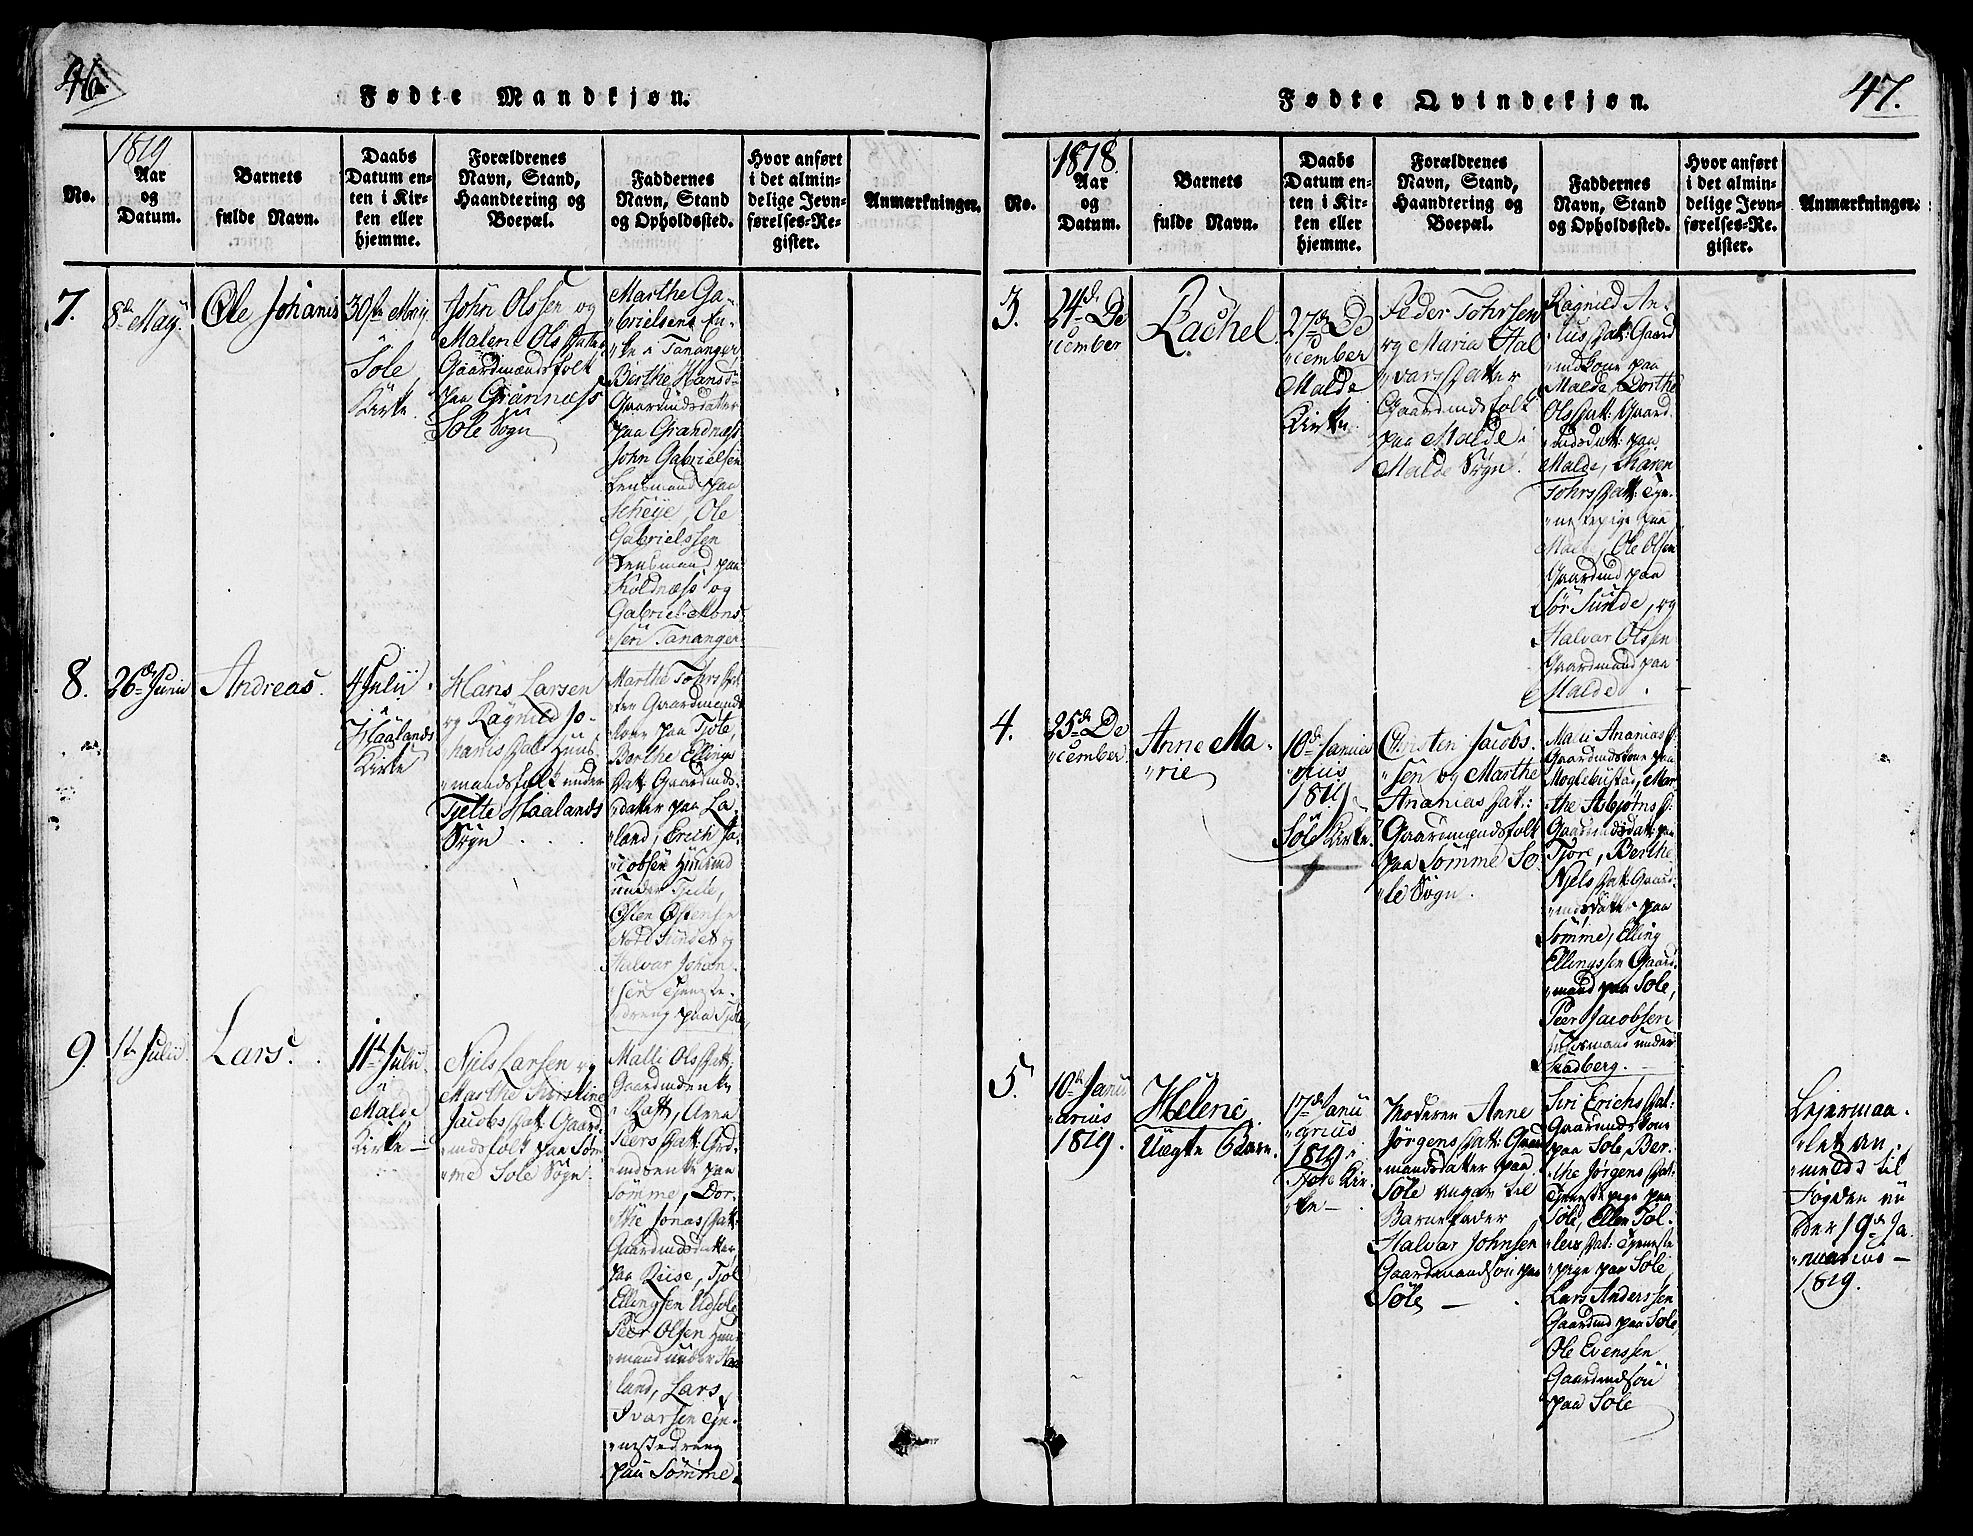 46.
Fødte Mandkjøn.
No.
1819
Aar
og
Datum.
Barnets
fulde Navn.
Daabs
Datum en-
ten i Kir-
ken eller
hjemme.
Forældrenes
Navn, Stand,
Haandtering og
Boepæl.
Faddernes
Navn, Stand
og Opholdssted.
Hvor anført
i det almin-
delige Jevn-
førelses-Re-
gister.
Anmærkninger.
7.
8de May.
Ole Johanis
30te May
Sole
Kirke.
John Olssen og
Malene Olsdatter
Gaardmandsfolk
paa Grannæss
Sole Sogn
Marthe Ga-
brielsens En-
ke i Tananger,
Berthe Hansd-
Gaardmdsdatter
paa Grandnæss
John Gabrielsen
Lensmand paa
Scheje, Ole
Gabrielssen
Lensmand paa
Koldnæss og
Gabriel Mons-
sen Tananger
8.
26de Junii
Andreas.
4 Julii
i
Haalands
Kirke
Hans Larsen
og Ragnild Jo-
hanisdatt: Huus-
mandsfolk under
Tjelte Haalands
Sogn
Marthe Tohrsdat-
ter Gaardmands
kone paa Tjole,
Berthe Ellings
datt: Gaardmds-
datter paa La
land, Erich Ja-
cobsen Huusmd
under Tjele,
Østen Østensen
Nord Sunde og
Halvar Johan-
sen Tjeneste-
dreng paa Tjole,
9.
1te Julii.
Lars.
11te Julii
i
Malde
Kirke
Njels Larsen og
Marthe Kirstine
Jacobsdatt: Gaard-
mdsfolk paa Søm
me Sole Sogn.
Malli Olsdatt:
Gaardmdenke
i Rått, Anna
Peersdatt: Grd-
mdsenke paa
Sømme, Dor-
the Jonasdatt:
Gaardmdsdatter
paa Riise, Tjøl
Ellingsen Udsole
Peer Olsen Huus
mand under Haa
land, Lars
Ivarsen Tje-
nestedreng
paa Sømme
47.
Fødte Qvindekjøn.
No.
1818.
Aar
og
Datum.
Barnets
fulde Navn.
Daabs
Datum en-
ten i Kir-
ken eller
hjemme.
Forældrenes
Navn, Stand,
Haandtering og
Boepæl.
Faddernes
Navn, Stand
og Opholdssted.
Hvor anført
i det almin-
delige Jevn-
førelses-Re-
gister.
Anmærkninger.
3.
24de De
cember
Rachel
27de De
cember
Malde
Kirke
Peder Tohrsen
og Maria Hal
varsdatter
Gaardmdsfolk
paa Malde i
Malde Sogn.
Ragnild An-
datt: Gaard
mdkone paa
Malde, Dorthe
Olsdatt: Gaard-
mdsdatt: paa
Malde, Karen
Tohrsdatt: Tje-
nestepige paa
Malde, Ole Olsen
Gaardmd paa
Sør Sunde, og
Halvar Olssen
Gaardmand paa
Malde.
4.
25de De
cember
Anne Ma-
rie
10de Janu
arius
1819
Sole Kirke
Christen Jacobs-
sen og Marthe
Ananiasdat:
Gaardmandsfolk
paa Sømme So
le Sogn.
Mari Ananiasd:
Gaardmdskone paa
Moglebustad, Mar-
the Asbjørnsd:
Gaardmdsdatt: paa
Tjore, Berthe
Njelsdatt: Gaard-
mdsdatter paa
Sømme, Elling
Ellingssen Gaard-
mand paa Sole,
Peer Jacobsen
Huusmand under
Skadberg.
5.
10de Janu
arius
1819.
Helene
Uægte Barn.
17de Janu
arius
1819 i
Sole Kir-
ke
Moderen Anne
Jørgensdatt: Gaard
mandsdatter paa
Sole angav til
Barnefader
Halvar Johnsen
Gaardmandsøn paa
Sole
Siri Erichsdat:
Gaarmdskone
paa Sole, Ber-
the Jørgensdat:
Tjenestpige paa
Sole, Ellen Tol-
lersdat: Tjeneste
pige paa Sole,
Lars Anderssen
Gaardmd paa Sole,
Ole Evenssen
Gaardmdsøn
paa Sole
Leiermaa-
let an-
meldt til
Fogden un
der 19de Ja
nuarius
1819.